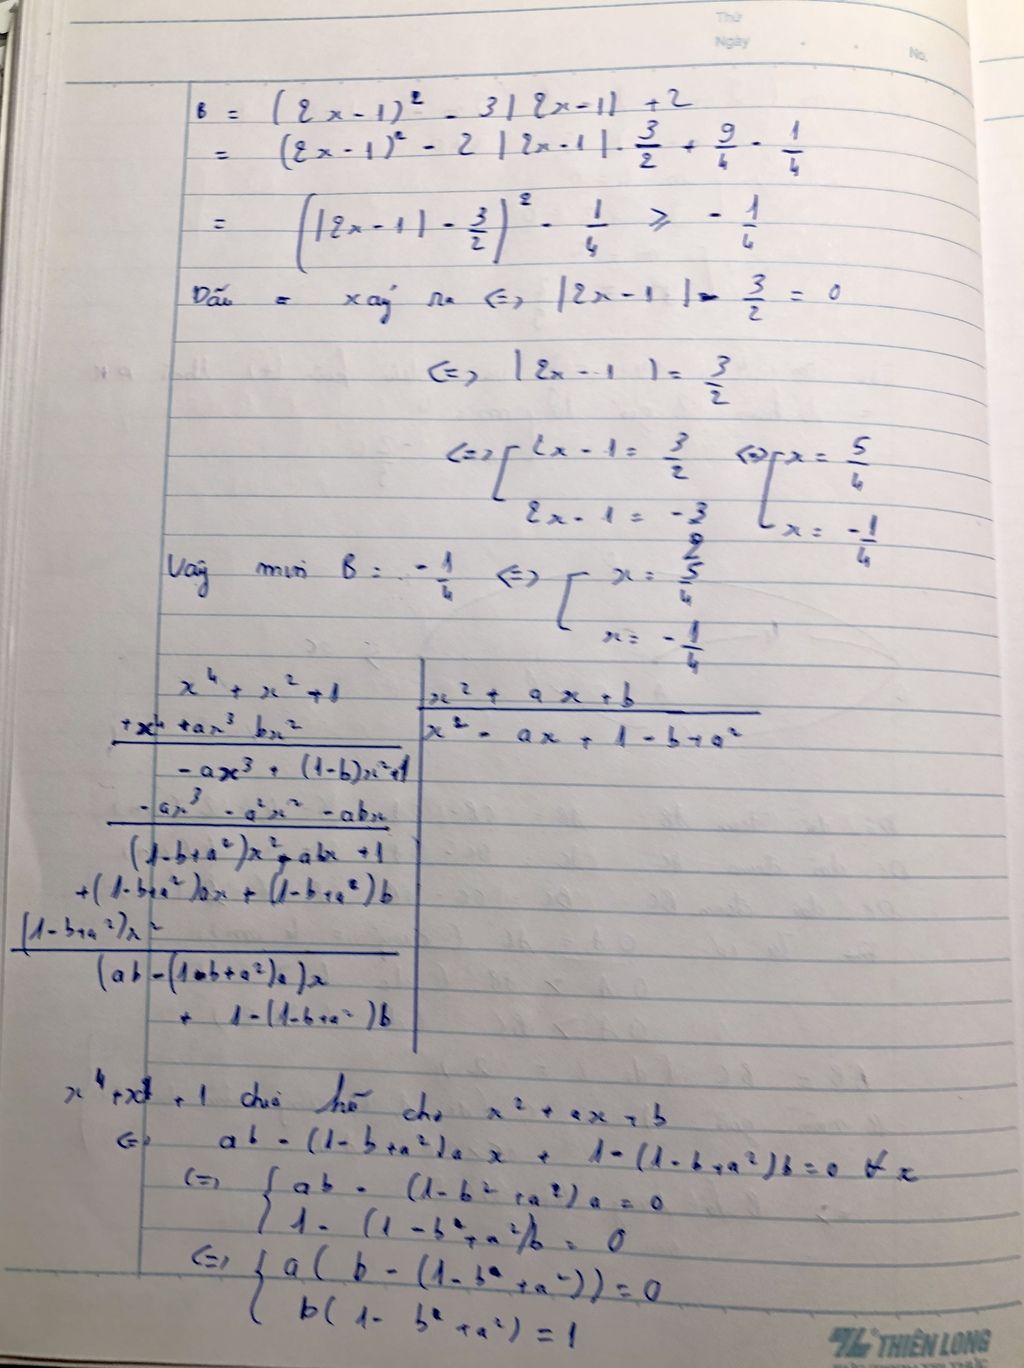 Thứ
Ngày . . No.
B = (2x-1)² - 3|2x-1| + 2
= (2x-1)² - 2|2x-1|. 3/2 + 9/4 - 1/4
= (|2x-1| - 3/2)² - 1/4 ≥ - 1/4
Dấu = xảy ra <=> |2x-1| - 3/2 = 0
<=> |2x-1| = 3/2
<=> [ 2x-1 = 3/2 <=> [ x = 5/4
2x-1 = -3/2 x = -1/4
Vậy min B = -1/4 <=> [ x = 5/4
x = -1/4
x⁴ + x² + 1 | x² + ax + b
+x⁴ +ax³ bx² | x² - ax + 1 - b + a²
-ax³ + (1-b)x²+1
-ax³ - a²x² - abx
(1-b+a²)x² + abx + 1
+(1-b+a²)ax + (1-b+a²)b
(1-b+a²)x²
(ab-(1-b+a²)a)x
+ 1-(1-b+a²)b
x⁴+x² + 1 chia hết cho x² + ax + b
<=> ab - (1-b+a²)a x + 1-(1-b+a²)b = 0 ∀ x
<=> { ab - (1-b²+a²)a = 0
1 - (1-b²+a²)b = 0
<=> { a( b - (1-b²+a²)) = 0
b( 1 - b²+a²) = 1
THIÊN LONG